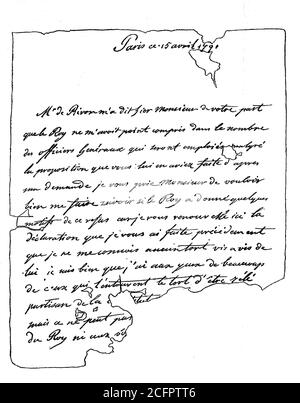 Paris ce 15 avril 1791
Mr de Rivon m'a dit hier monsieur de votre part
que le Roy ne m'avoit point compris dans le nombre
des officiers Généraux qui seront employés malgré
la proposition que vous lui en aviez faite d'après
ma demande je vous prie Monsieur de vouloir
bien me faire savoir si le Roy a donné quelques
motifs de ce refus car je vous renouvelle ici la
déclaration que je vous ai faite précédemment
que je ne me connois aucun tort vis a vis de
lui je sais bien que j'ai aux yeux de beaucoup
de ceux qui l'entourent le tort d'être zélé
partisan de la
mais ce ne peut pas
du Roy ni aux
alamy
Image ID: 2CFPTT6
www.alamy.com